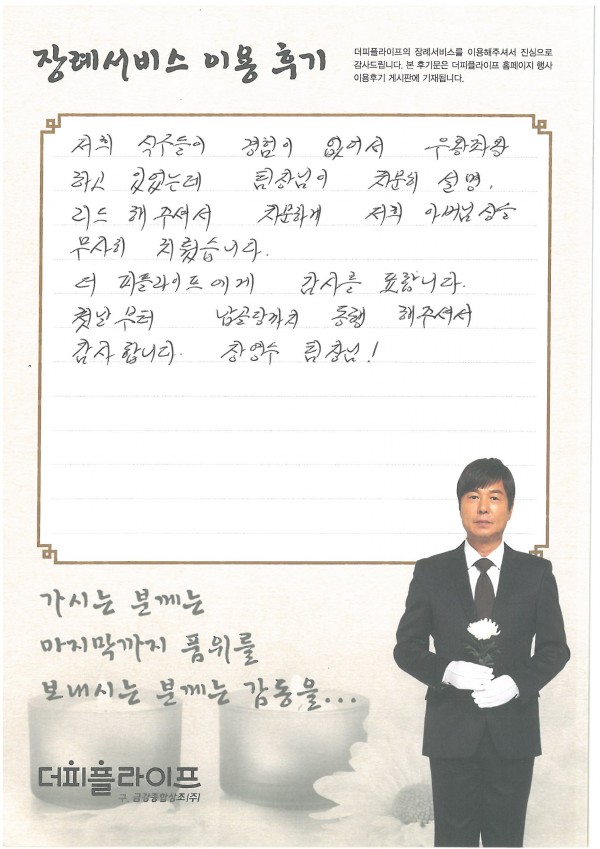 장례서비스 이용 후기
더피플라이프의 장례서비스를 이용해주셔서 진심으로
감사드립니다. 본 후기문은 더피플라이프 홈페이지 행사
이용후기 게시판에 기재됩니다.
저희 식구들이 경험이 없어서 우왕좌왕
하고 있었는데 팀장님이 차분히 설명,
리드 해 주셔서 차분하게 저희 아버님 상을
무사히 치뤘습니다.
더 피플라이프에게 감사를 표합니다.
첫날부터 납골당까지 동행 해주셔서
감사합니다. 장영수 팀장님!
가시는 분께는
마지막까지 품위를
보내시는 분께는 감동을...
더피플라이프
구. 금강종합상조(주)